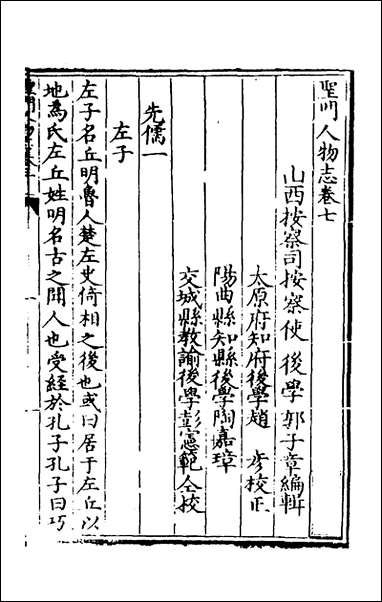 聖門人物志卷七
山西按察司按察使後學郭子章編輯
太原府知府後學趙 彥校正
陽曲縣知縣後學陶嘉璋
交城縣教諭後學彭憲範仝校
先儒一
左子
左子名丘明魯人楚左史倚相之後也或曰居于左丘以
地為氏左丘姓明名古之聞人也受經於孔子孔子曰巧